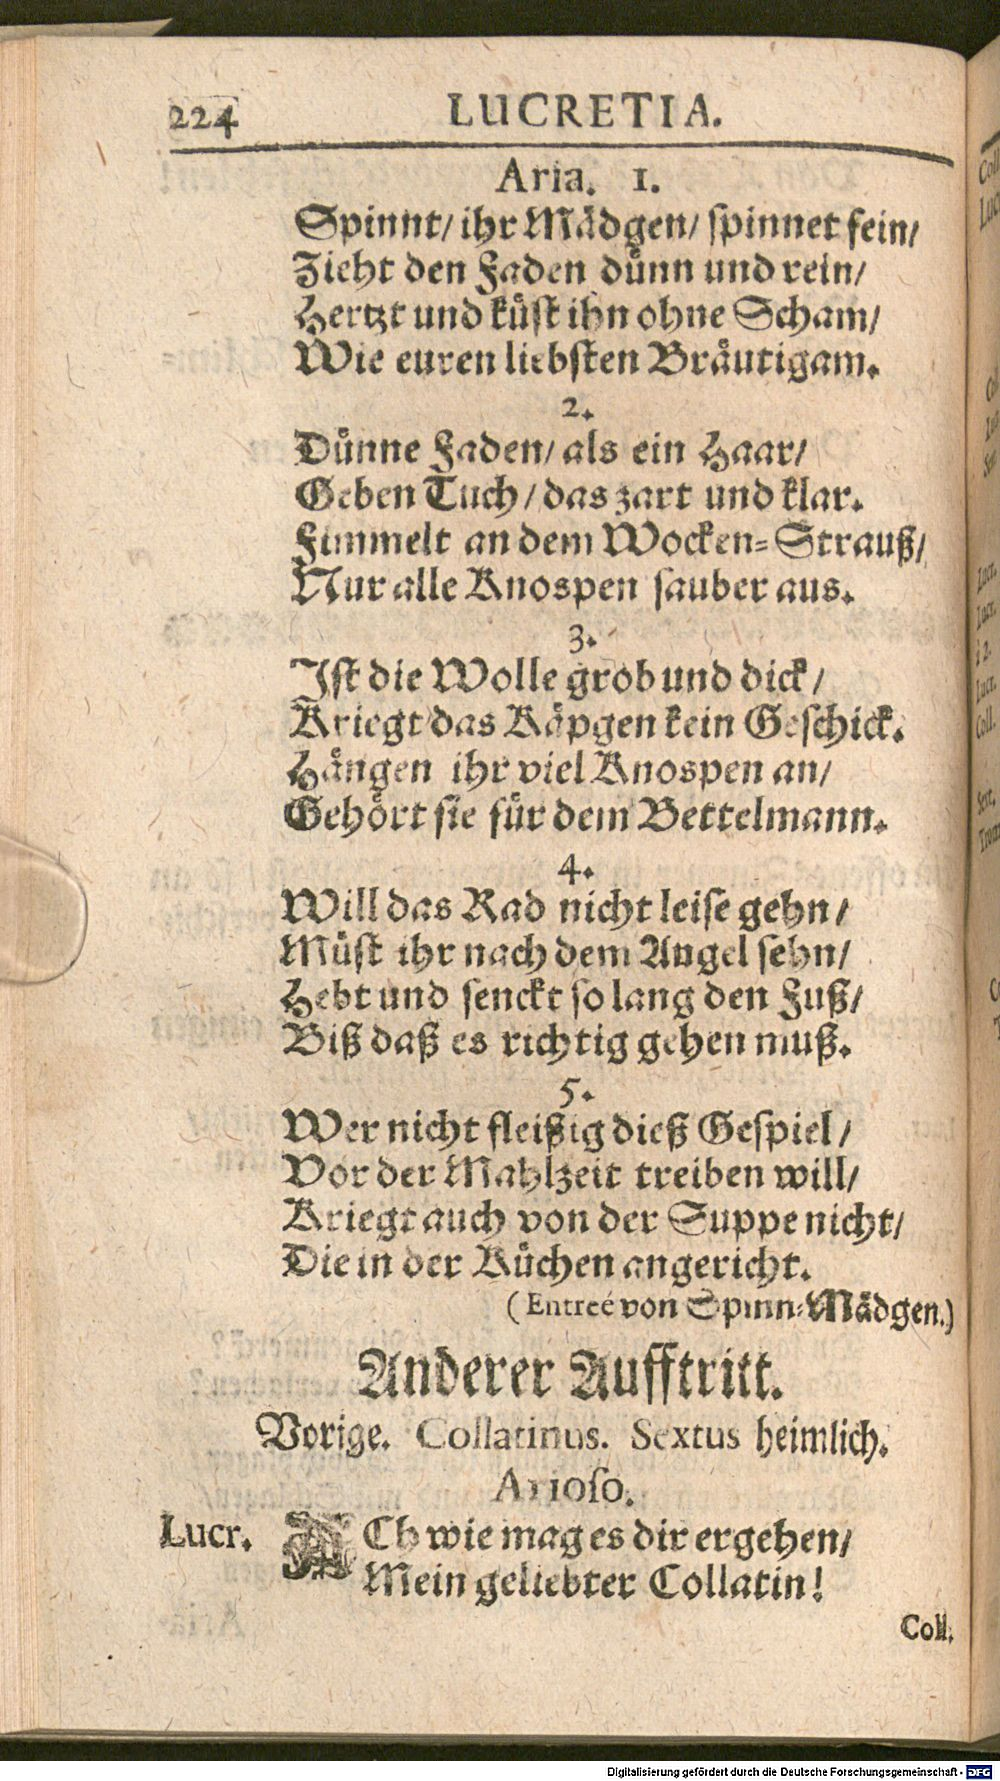 224 LUCRETIA.
Aria. 1.
Spinnt/ ihr Mådgen/ spinnet fein/
Zieht den Faden důnn und rein/
Hertzt und kůst ihn ohne Scham/
Wie euren liebsten Bråutigam.
2.
Důnne Faden/ als ein Haar/
Geben Tuch/ das zart und klar.
Fimmelt an dem Wocken-Strauß/
Nur alle Knospen sauber aus.
3.
Ist die Wolle grob und dick/
Kriegt das Kåpgen kein Geschick.
Hången ihr viel Knospen an/
Gehört sie für dem Bettelmann.
4.
Will das Rad nicht leise gehn/
Můst ihr nach dem Angel sehn/
Hebt und senckt so lang den Fuß/
Biß daß es richtig gehen muß.
5.
Wer nicht fleißig dieß Gespiel/
Vor der Mahlzeit treiben will/
Kriegt auch von der Suppe nicht/
Die in der Kůchen angericht.
(Entreé von Spinn-Mådgen.)
Anderer Aufftritt.
Vorige. Collatinus. Sextus heimlich.
Arioso.
Lucr. ACh wie mag es dir ergehen/
Mein geliebter Collatin!
Coll.
Digitalisierung gefördert durch die Deutsche Forschungsgemeinschaft - DFG